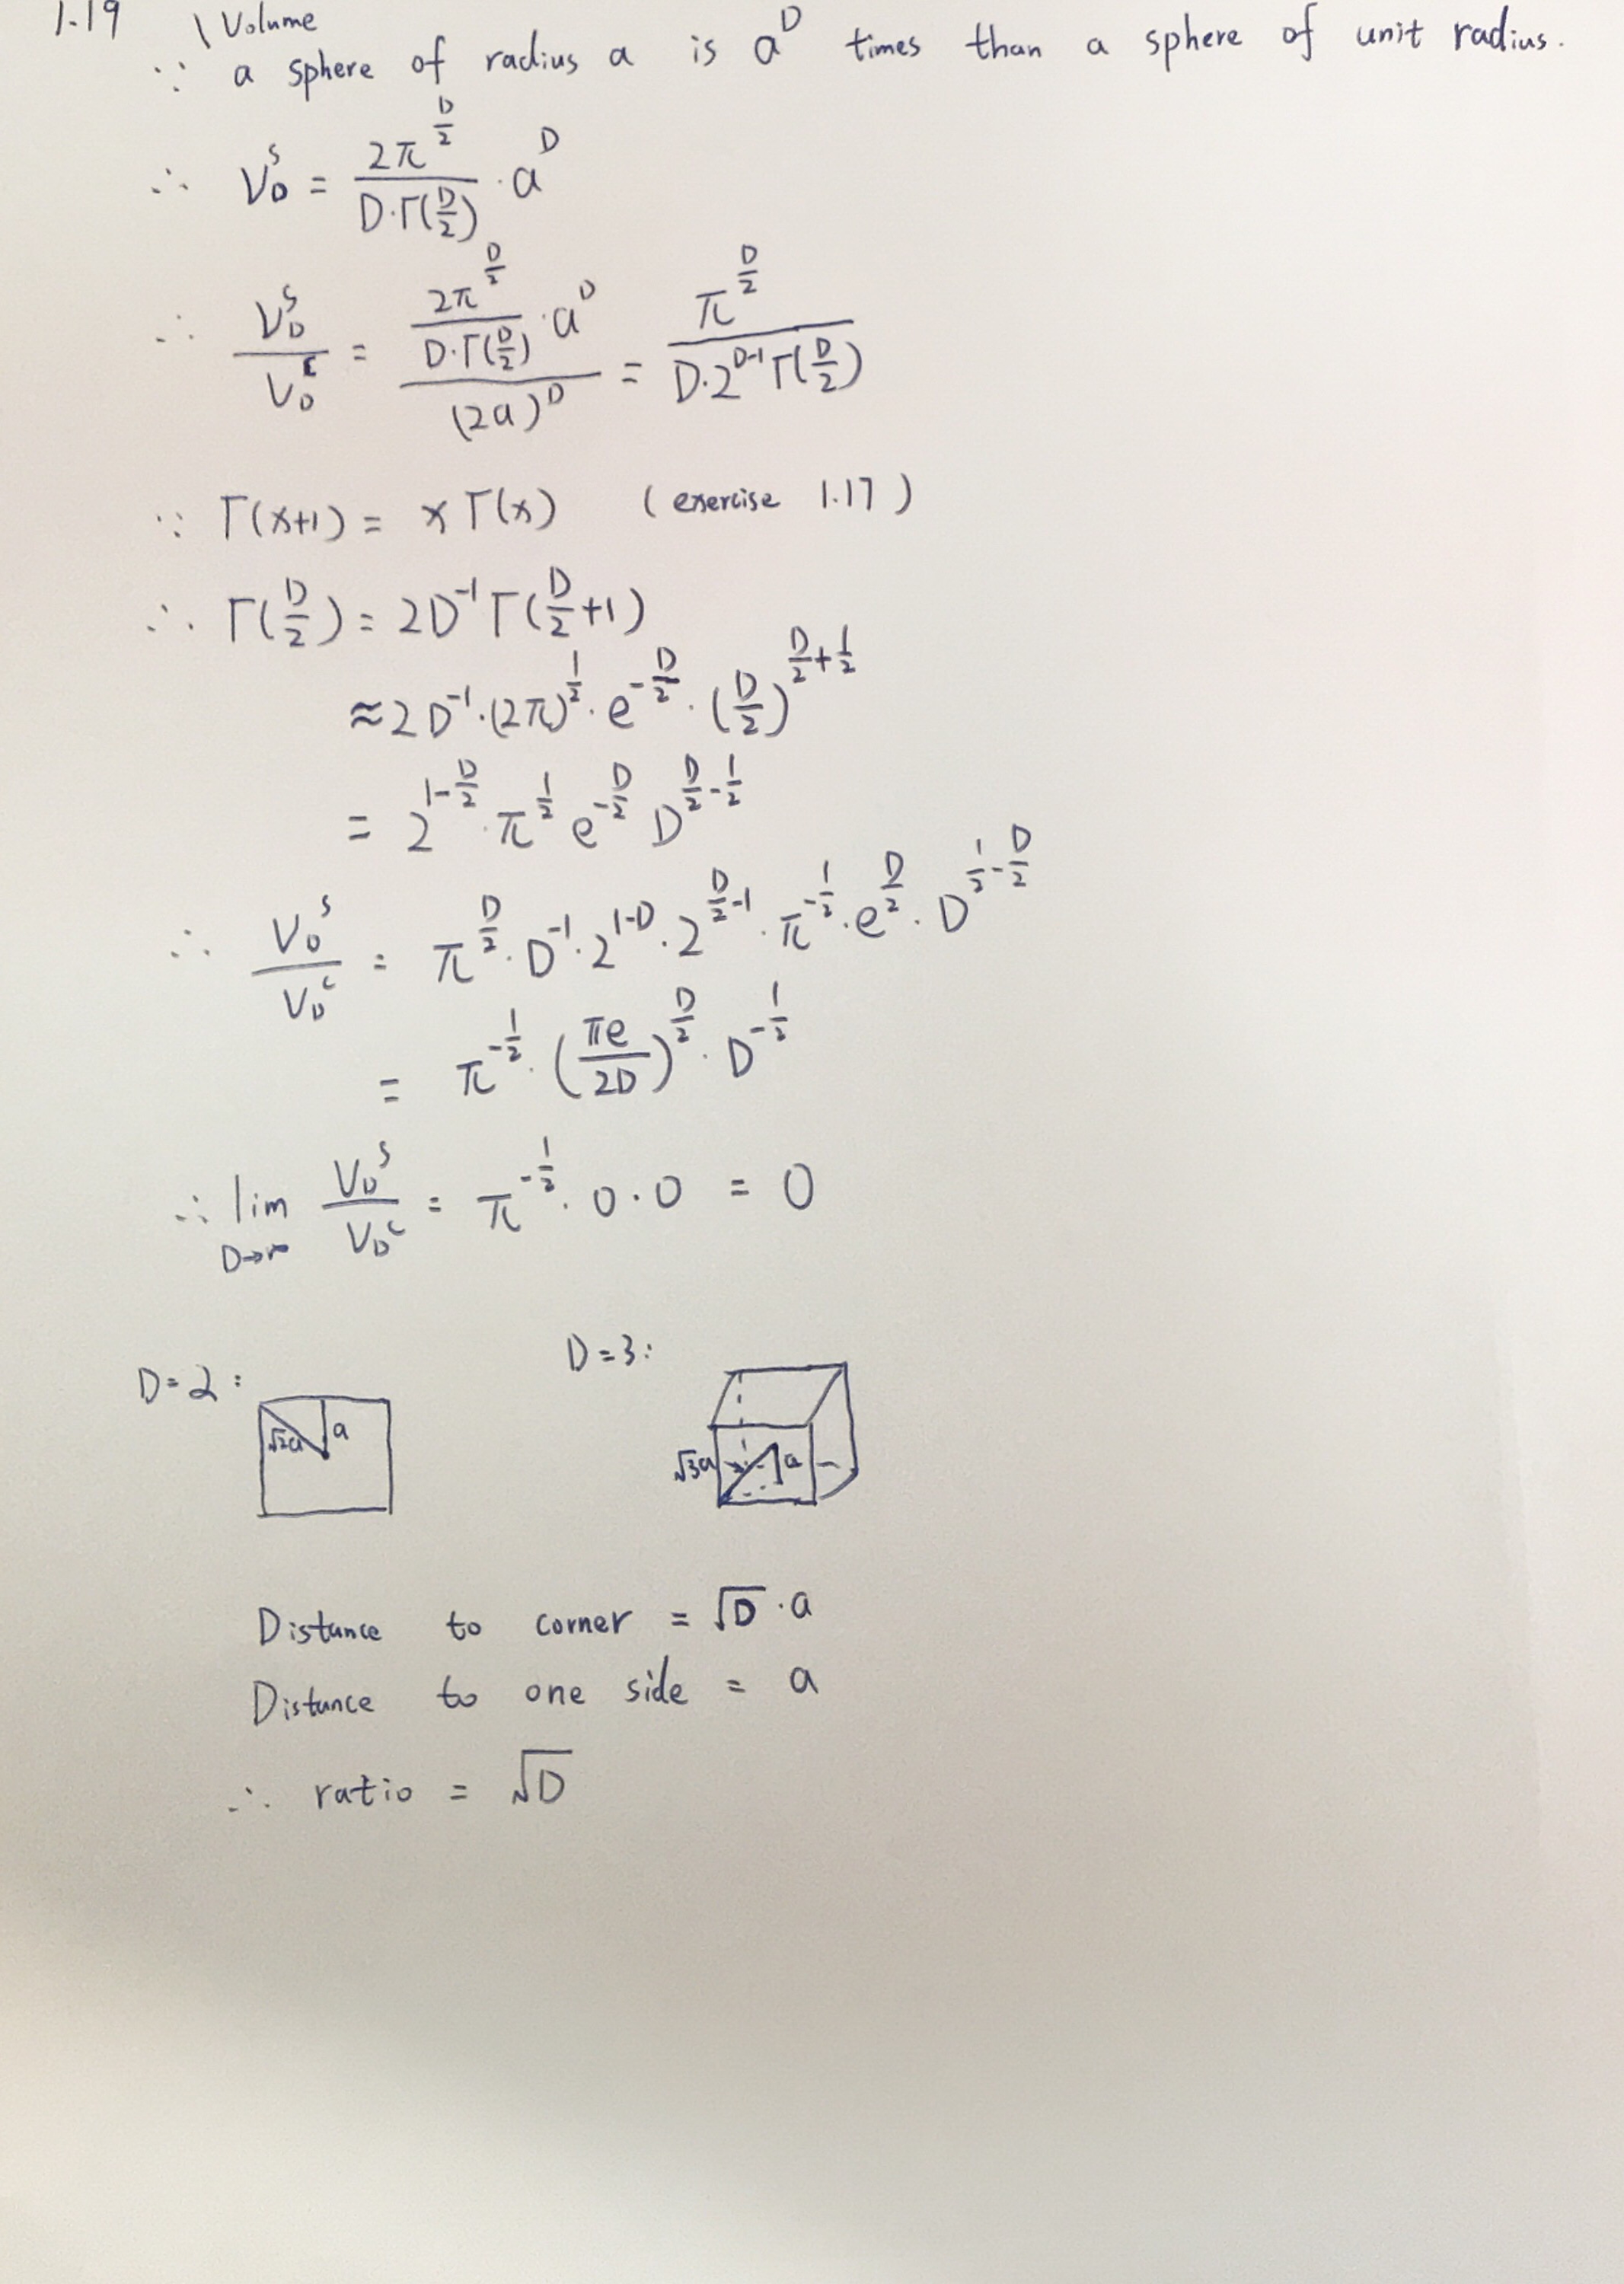 1.19 \ Volume
∵ a sphere of radius a is a^D times than a sphere of unit radius.
∴ V_D^S = 2π^{D/2} / (D·Γ(D/2)) · a^D
∴ V_D^S / V_D^C = (2π^{D/2} / (D·Γ(D/2)) · a^D) / (2a)^D = π^{D/2} / (D·2^{D-1} Γ(D/2))
∵ Γ(x+1) = xΓ(x) (exercise 1.17)
∴ Γ(D/2) = 2D^{-1} Γ(D/2+1)
≈ 2D^{-1}·(2π)^{1/2}·e^{-D/2}·(D/2)^{D/2+1/2}
= 2^{1-D/2}·π^{1/2} e^{-D/2} D^{D/2-1/2}
∴ V_D^S / V_D^C = π^{D/2}·D^{-1}·2^{1-D}·2^{D/2-1}·π^{-1/2}·e^{D/2}·D^{1/2-D/2}
= π^{-1/2}·(πe/2D)^{D/2}·D^{-1/2}
∴ lim_{D→∞} V_D^S / V_D^C = π^{-1/2}·0·0 = 0
D=2:
√2a
a
D=3:
√3a
a
Distance to corner = √D·a
Distance to one side = a
∴ ratio = √D